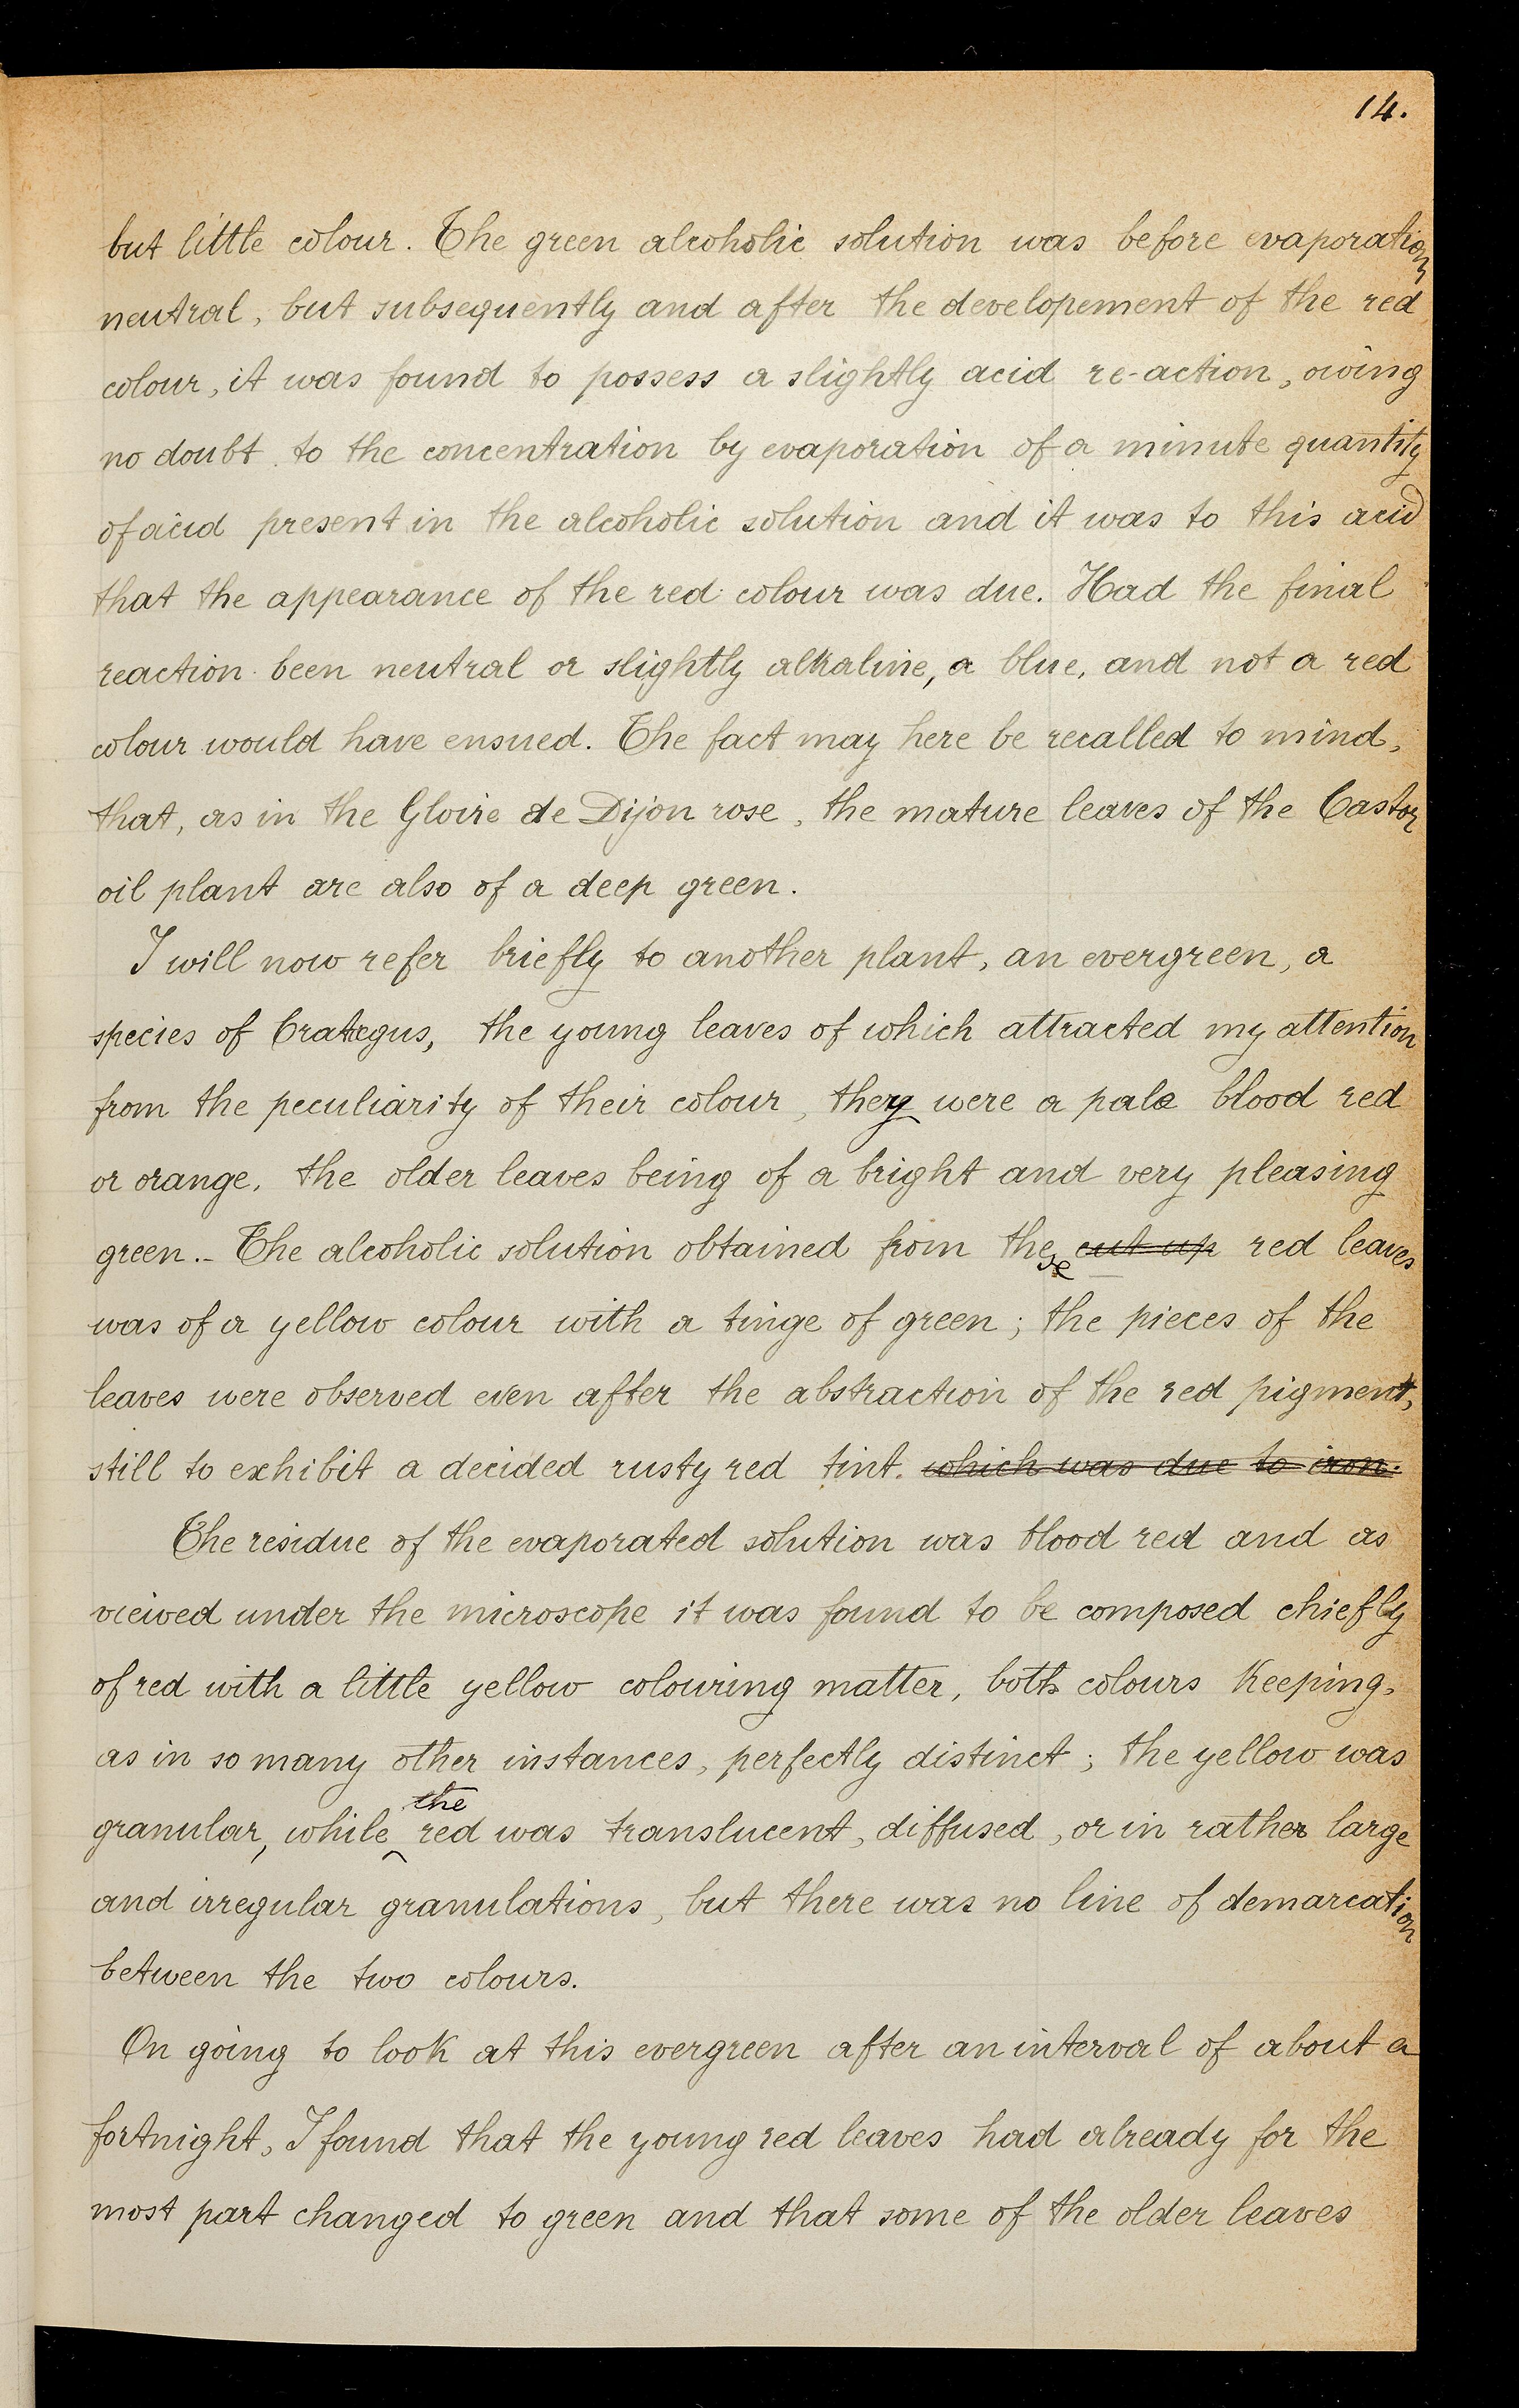 14.
but little colour. The green alcoholic solution was before evaporation
neutral, but subsequently and after the developement of the red
colour, it was found to possess a slightly acid re-action, owing
no doubt to the concentration by evaporation of a minute quantity
of acid present in the alcoholic solution and it was to this acid
that the appearance of the red colour was due. Had the final
reaction been neutral or slightly alkaline, a blue, and not a red
colour would have ensued. The fact may here be recalled to mind,
that, as in the Gloire de Dijon rose, the mature leaves of the Castor
oil plant are also of a deep green.
I will now refer briefly to another plant, an evergreen, a
species of Cratægus, the young leaves of which attracted my attention
from the peculiarity of their colour, they were a pale blood red
or orange, the older leaves being of a bright and very pleasing
green.- The alcoholic solution obtained from these cut up red leaves
was of a yellow colour with a tinge of green; the pieces of the
leaves were observed even after the abstraction of the red pigment,
still to exhibit a decided rusty red tint. which was due to iron.
The residue of the evaporated solution was blood red and as
viewed under the microscope it was found to be composed chiefly
of red with a little yellow colouring matter, both colours keeping,
as in so many other instances, perfectly distinct; the yellow was
granular, while the red was translucent, diffused, or in rather large
and irregular granulations, but there was no line of demarcation
between the two colours.
On going to look at this evergreen after an interval of about a
fortnight, I found that the young red leaves had already for the
most part changed to green and that some of the older leaves